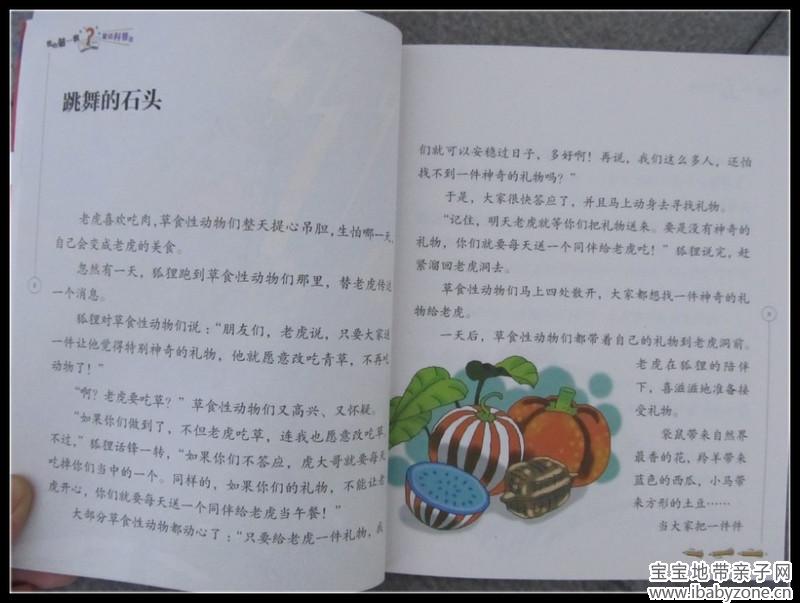 我的第一本
童话科普书
跳舞的石头
老虎喜欢吃肉，草食性动物们整天提心吊胆，生怕哪一天，
自己会变成老虎的美食。
忽然有一天，狐狸跑到草食性动物们那里，替老虎传达
一个消息。
狐狸对草食性动物们说：“朋友们，老虎说，只要大家送
一件让他觉得特别神奇的礼物，他就愿意改吃青草，不再吃
动物了！”
“啊？老虎要吃草？”草食性动物们又高兴、又怀疑。
“如果你们做到了，不但老虎吃草，连我也愿意改吃草。
不过，”狐狸话锋一转，“如果你们不答应，虎大哥就要每天
吃掉你们当中的一个。同样的，如果你们的礼物，不能让老
虎开心，你们就要每天送一个同伴给老虎当午餐！”
大部分草食性动物都动心了：“只要给老虎一件礼物，我
们就可以安稳过日子，多好啊！再说，我们这么多人，还怕
找不到一件神奇的礼物吗？”
于是，大家很快答应了，并且马上动身去寻找礼物。
“记住，明天老虎就等你们把礼物送来。要是没有神奇的
礼物，你们就要每天送一个同伴给老虎吃！”狐狸说完，赶
紧溜回老虎洞去。
草食性动物们马上四处散开，大家都想找一件神奇的礼
物给老虎。
一天后，草食性动物们都带着自己的礼物到老虎洞前。
老虎在狐狸的陪伴
下，喜滋滋地准备接
受礼物。
袋鼠带来自然界
最香的花，羚羊带来
蓝色的西瓜，小马带
来方形的土豆……
当大家把一件件
宝宝地带亲子网
www.ibabyzone.cn